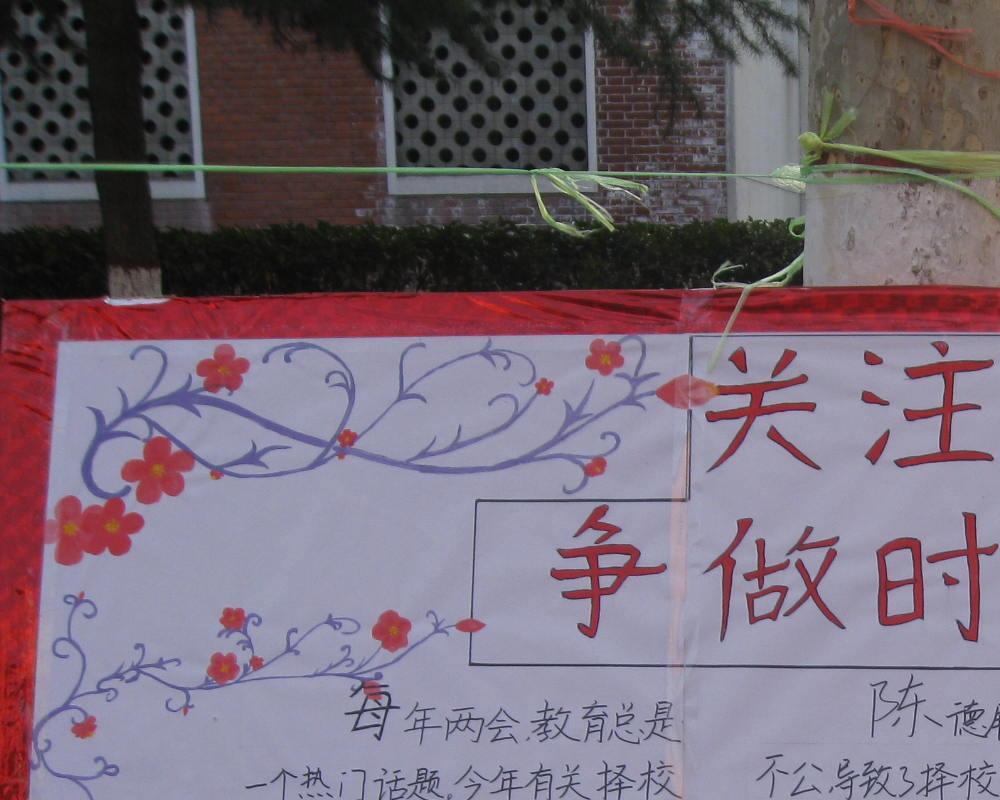 关注
争做时
每年两会,教育总是
一个热门话题。今年有关择校
陈德
不公,导致了择校